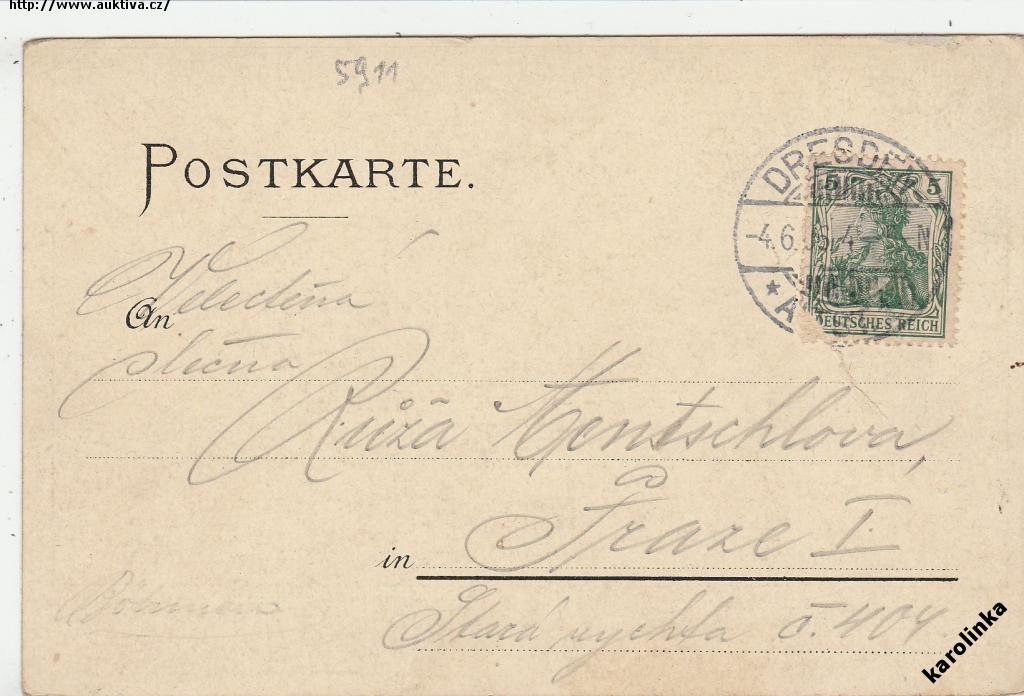 http://www.auktiva.cz/
5911
POSTKARTE.
DRESDEN
-4.6. 4- N
* A
5 5
DEUTSCHES REICH
Velectěná
An
slečna
Růžá Mentschlova,
v
in Praze I.
Böhmen
Stará rychta č. 404.
karolinka